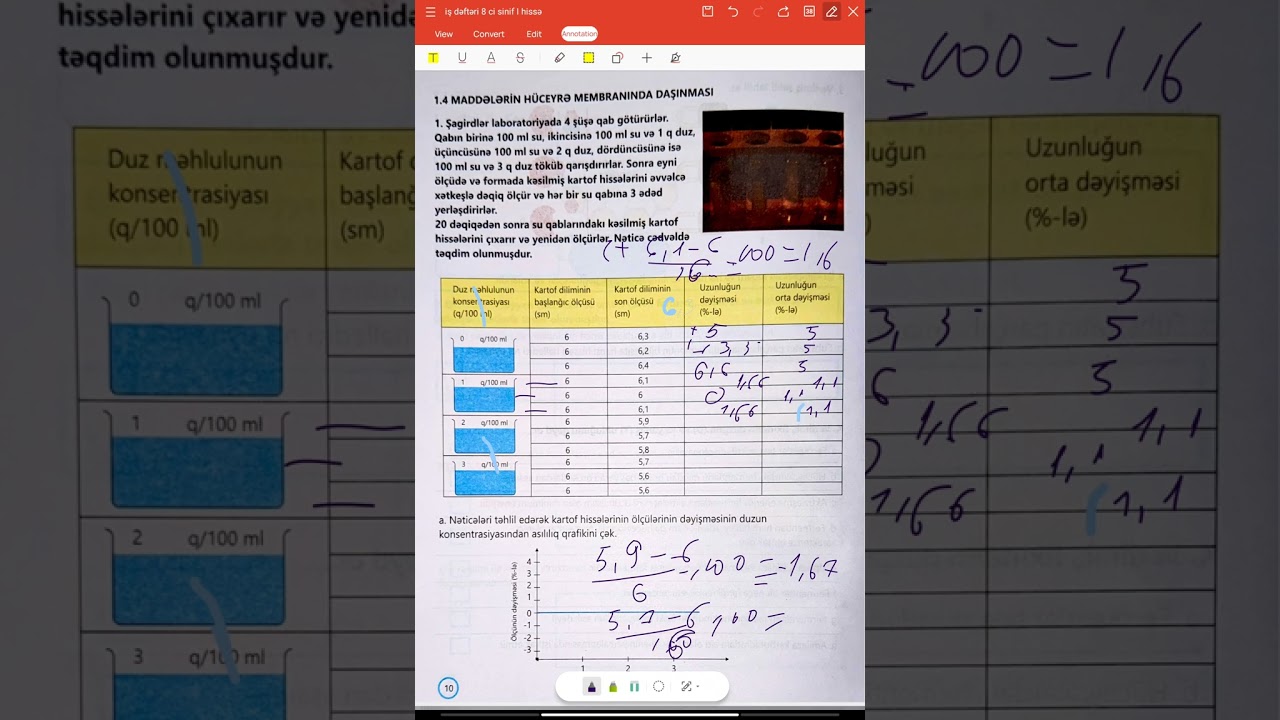 iş dəftəri 8 ci sinif I hissə
38
View Convert Edit Annotation
T U A S
1.4 MADDƏLƏRİN HÜCEYRƏ MEMBRANINDA DAŞINMASI
1. Şagirdlər laboratoriyada 4 şüşə qab götürürlər.
Qabın birinə 100 ml su, ikincisinə 100 ml su və 1 q duz,
üçüncüsünə 100 ml su və 2 q duz, dördüncüsünə isə
100 ml su və 3 q duz töküb qarışdırırlar. Sonra eyni
ölçüdə və formada kəsilmiş kartof hissələrini əvvəlcə
xətkeşlə dəqiq ölçür və hər bir su qabına 3 ədəd
yerləşdirirlər.
20 dəqiqədən sonra su qablarındakı kəsilmiş kartof
hissələrini çıxarır və yenidən ölçürlər. Nəticə cədvəldə
təqdim olunmuşdur.
6,1-6
100=1,6
Duz məhlulunun konsentrasiyası (q/100 ml)
Kartof diliminin başlanğıc ölçüsü (sm)
Kartof diliminin son ölçüsü (sm)
6
Uzunluğun dəyişməsi (%-lə)
Uzunluğun orta dəyişməsi (%-lə)
0 q/100 ml 6 6,3 +5 5
6 6,2 3,3 5
6 6,4 6,6 5
1 q/100 ml 6 6,1 1,66 1,1
6 6 0 1,1
6 6,1 1,66 1,1
2 q/100 ml 6 5,9
6 5,7
6 5,8
3 q/100 ml 6 5,7
6 5,6
6 5,6
a. Nəticələri təhlil edərək kartof hissələrinin ölçülərinin dəyişməsinin duzun
konsentrasiyasından asılılıq qrafikini çək.
Ölçünün dəyişməsi (%-lə)
4
3
2
1
0
-1
-2
-3
1 2 3
5,9-6
6
100=-1,67
10
hissələrini çıxarır və yenidə
təqdim olunmuşdur.
Duz məhlulunun
konsentrasiyası
(q/100 ml)
Kartof
başlanğ
(sm)
0 q/100 ml
1 q/100 ml
2 q/100 ml
3 q/100 ml
100=1,6
uğun
əsi
Uzunluğun
orta dəyişməsi
(%-lə)
5
3,3 5
5
1,66 1,1
1,1
1,66 1,1